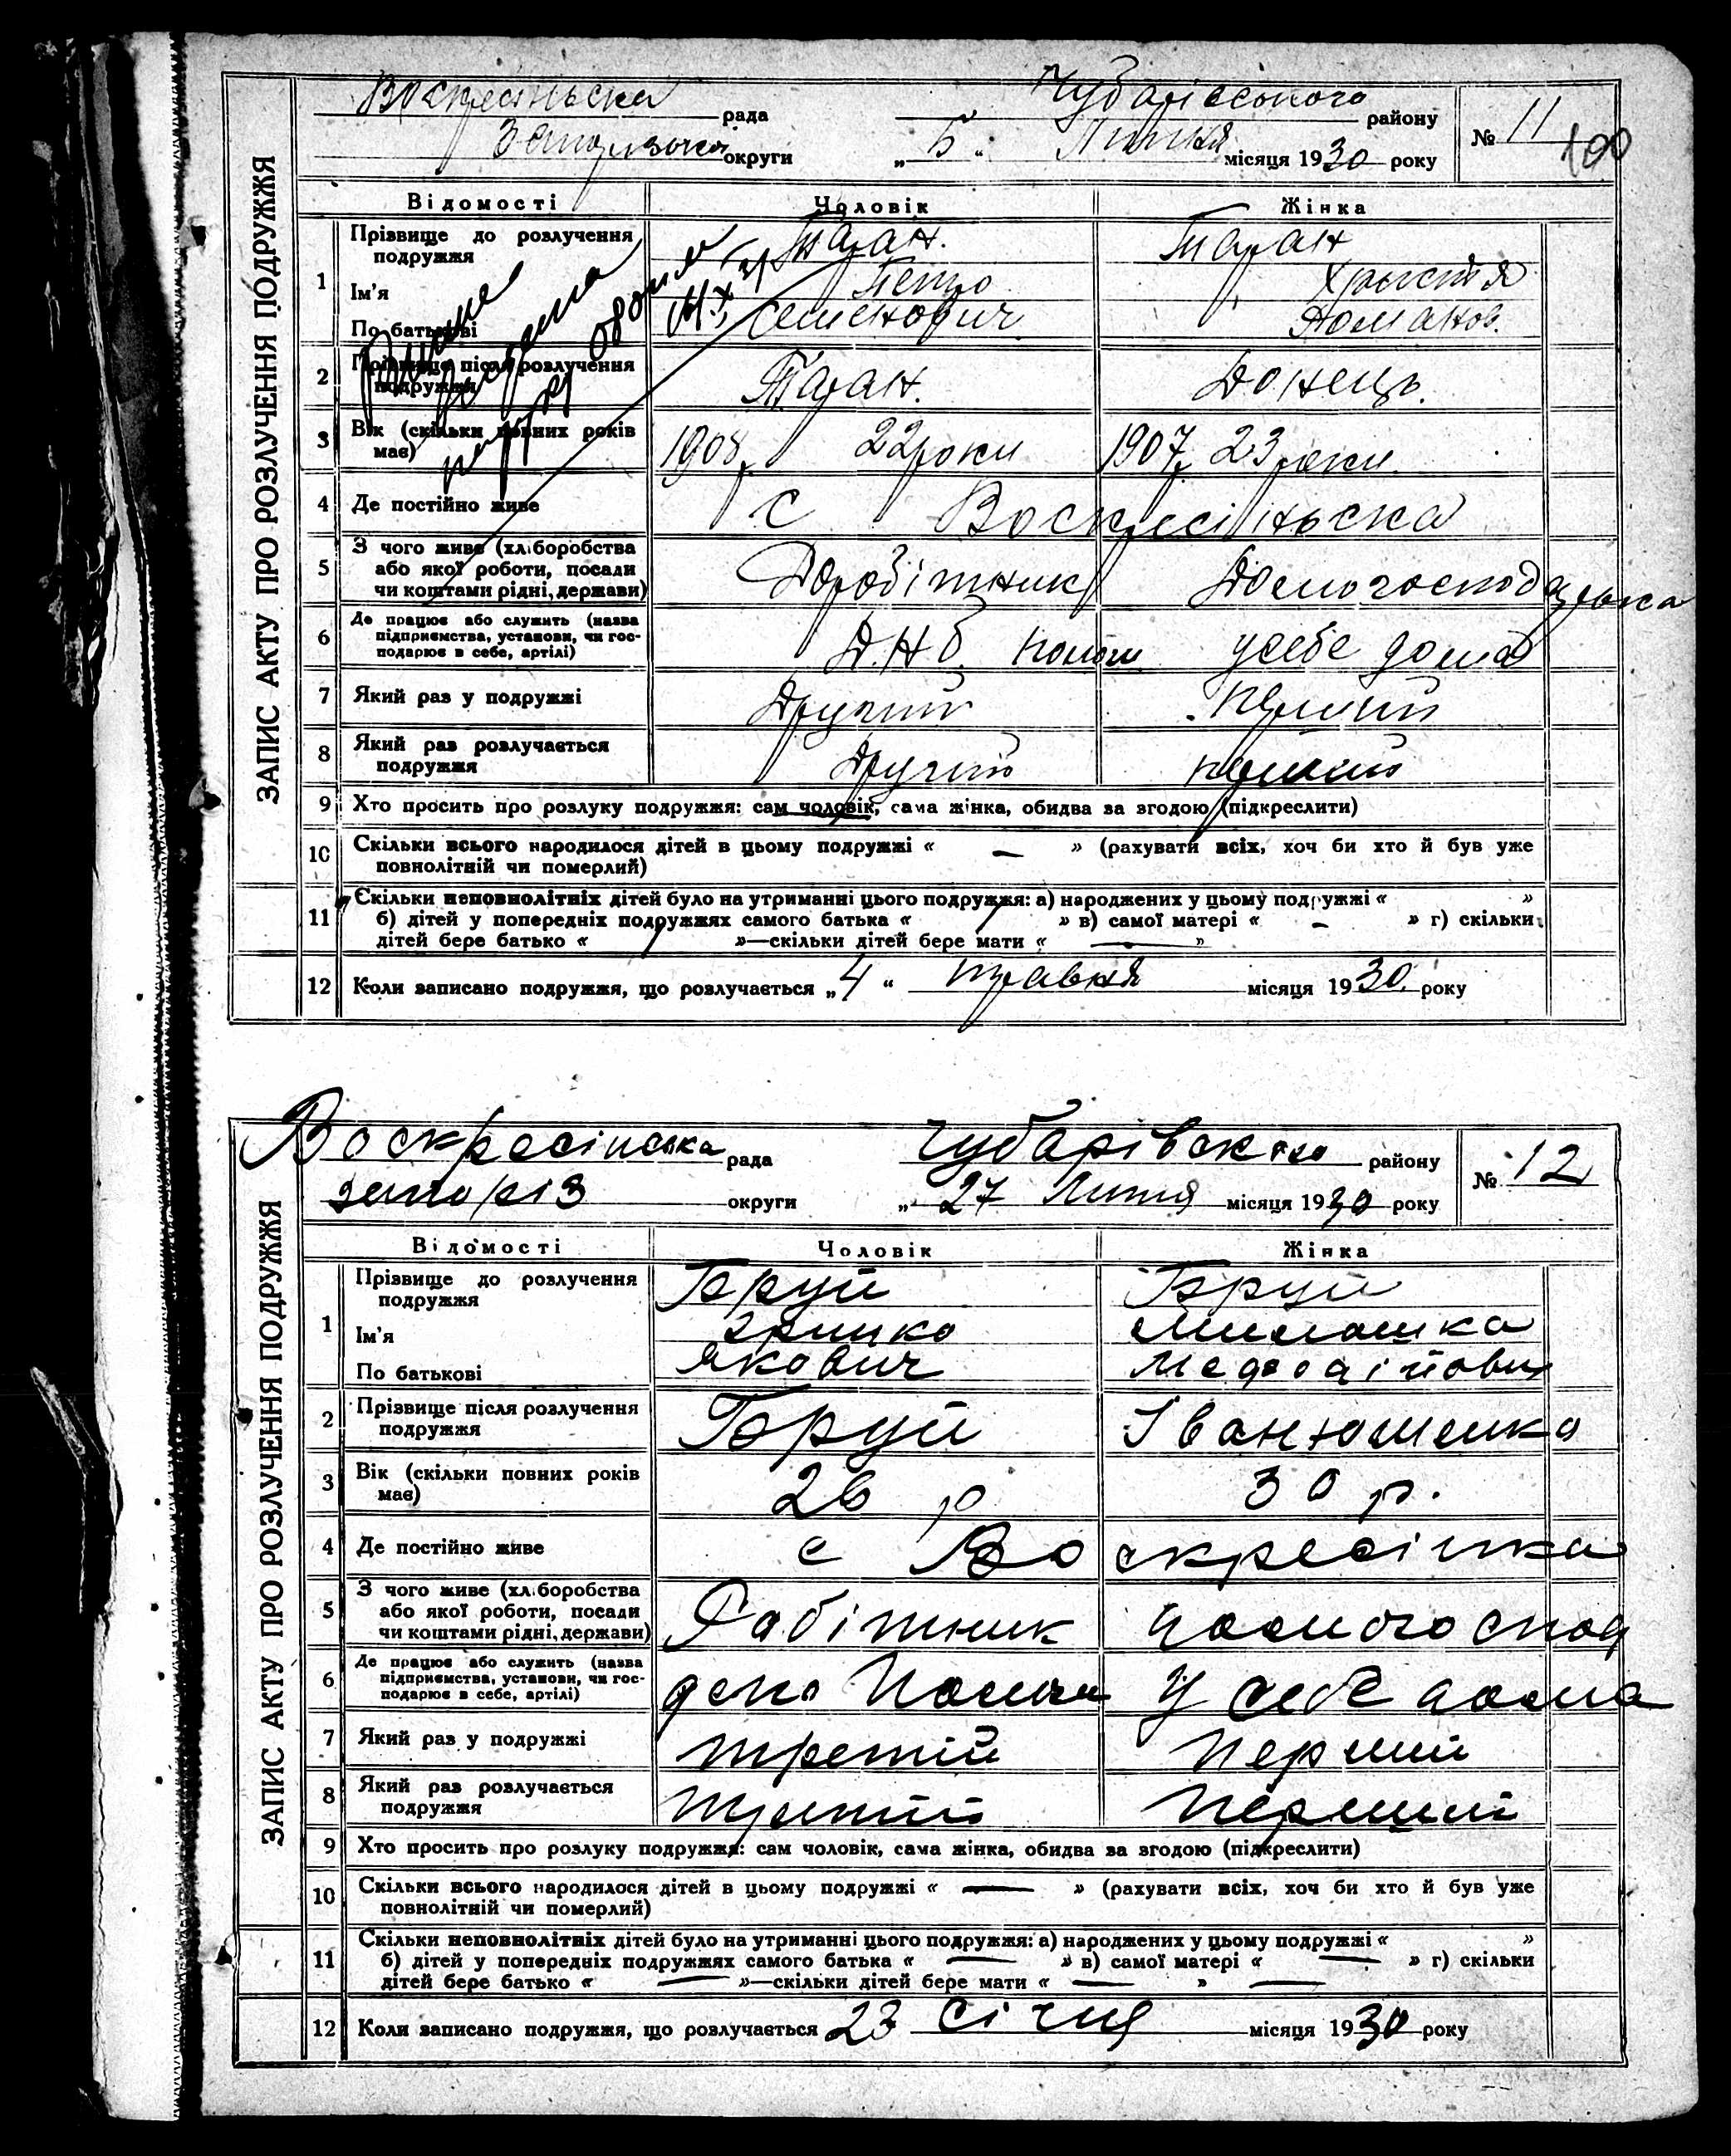 Воскресінська рада Чубарівського району
№ 11
100
Запорізької округи „ 5 “ Липня місяця 1930 року
ЗАПИС АКТУ ПРО РОЗЛУЧЕННЯ ПОДРУЖЖЯ
Відомості Чоловік Жінка
1 Прізвище до розлучення подружжя Таран. Таран
Ім’я Петро Христя
По батькові Семенович Романов.
2 Прізвище після розлучення подружжя Таран. Донець.
3 Вік (скільки повних років має) 1908р 22роки 1907р 23роки.
4 Де постійно живе с Воскресінська
5 З чого живе (хліборобства
або якої роботи, посади
чи коштами рідні, держави) Робітник Домогосподарька
6 Де працює або служить (назва
підприємства, установи, чи гос-
подарює в себе, артілі) Пологи усебе дома
7 Який раз у подружжі Другий Перший
8 Який раз розлучається
подружжя Другий перший
9 Хто просить про розлуку подружжя: сам чоловік, сама жінка, обидва за згодою (підкреслити)
10 Скільки всього народилося дітей в цьому подружжі « — » (рахувати всіх, хоч би хто й був уже
повнолітній чи померлий)
11 Скільки неповнолітніх дітей було на утриманні цього подружжя: а) народжених у цьому подружжі « »
б) дітей у попередніх подружжях самого батька « / » в) самої матері « – » г) скільки
дітей бере батько « / »—скільки дітей бере мати « — »
12 Коли записано подружжя, що розлучається „4 “ травня місяця 1930. року
Воскресінська рада Чубарівского району
№ 12
запоріз округи „ 27 Липня місяця 1930 року
ЗАПИС АКТУ ПРО РОЗЛУЧЕННЯ ПОДРУЖЖЯ
Відомості Чоловік Жінка
1 Прізвище до розлучення
подружжя Бруй Бруй
Ім’я Гришко Милашка
По батькові Якович Мефодійовн
2 Прізвище після розлучення
подружжя Бруй Іванюшенко
3 Вік (скільки повних років
має) 26 р 30 р.
4 Де постійно живе с Воскресінка
5 З чого живе (хліборобства
або якої роботи, посади
чи коштами рідні, держави) Робітник домогоспод
6 Де працює або служить (назва
підприємства, установи, чи гос-
подарює в себе, артілі) депо Пологи У себе дома
7 Який раз у подружжі третій Перший
8 Який раз розлучається
подружжя третій Перший
9 Хто просить про розлуку подружжя: сам чоловік, сама жінка, обидва за згодою (підкреслити)
10 Скільки всього народилося дітей в цьому подружжі « — » (рахувати всіх, хоч би хто й був уже
повнолітній чи померлий)
11 Скільки неповнолітніх дітей було на утриманні цього подружжя: а) народжених у цьому подружжі « »
б) дітей у попередніх подружжях самого батька « — » в) самої матері « — » г) скільки
дітей бере батько « — »—скільки дітей бере мати « — » —
12 Коли записано подружжя, що розлучається 23 Січня місяця 1930 року